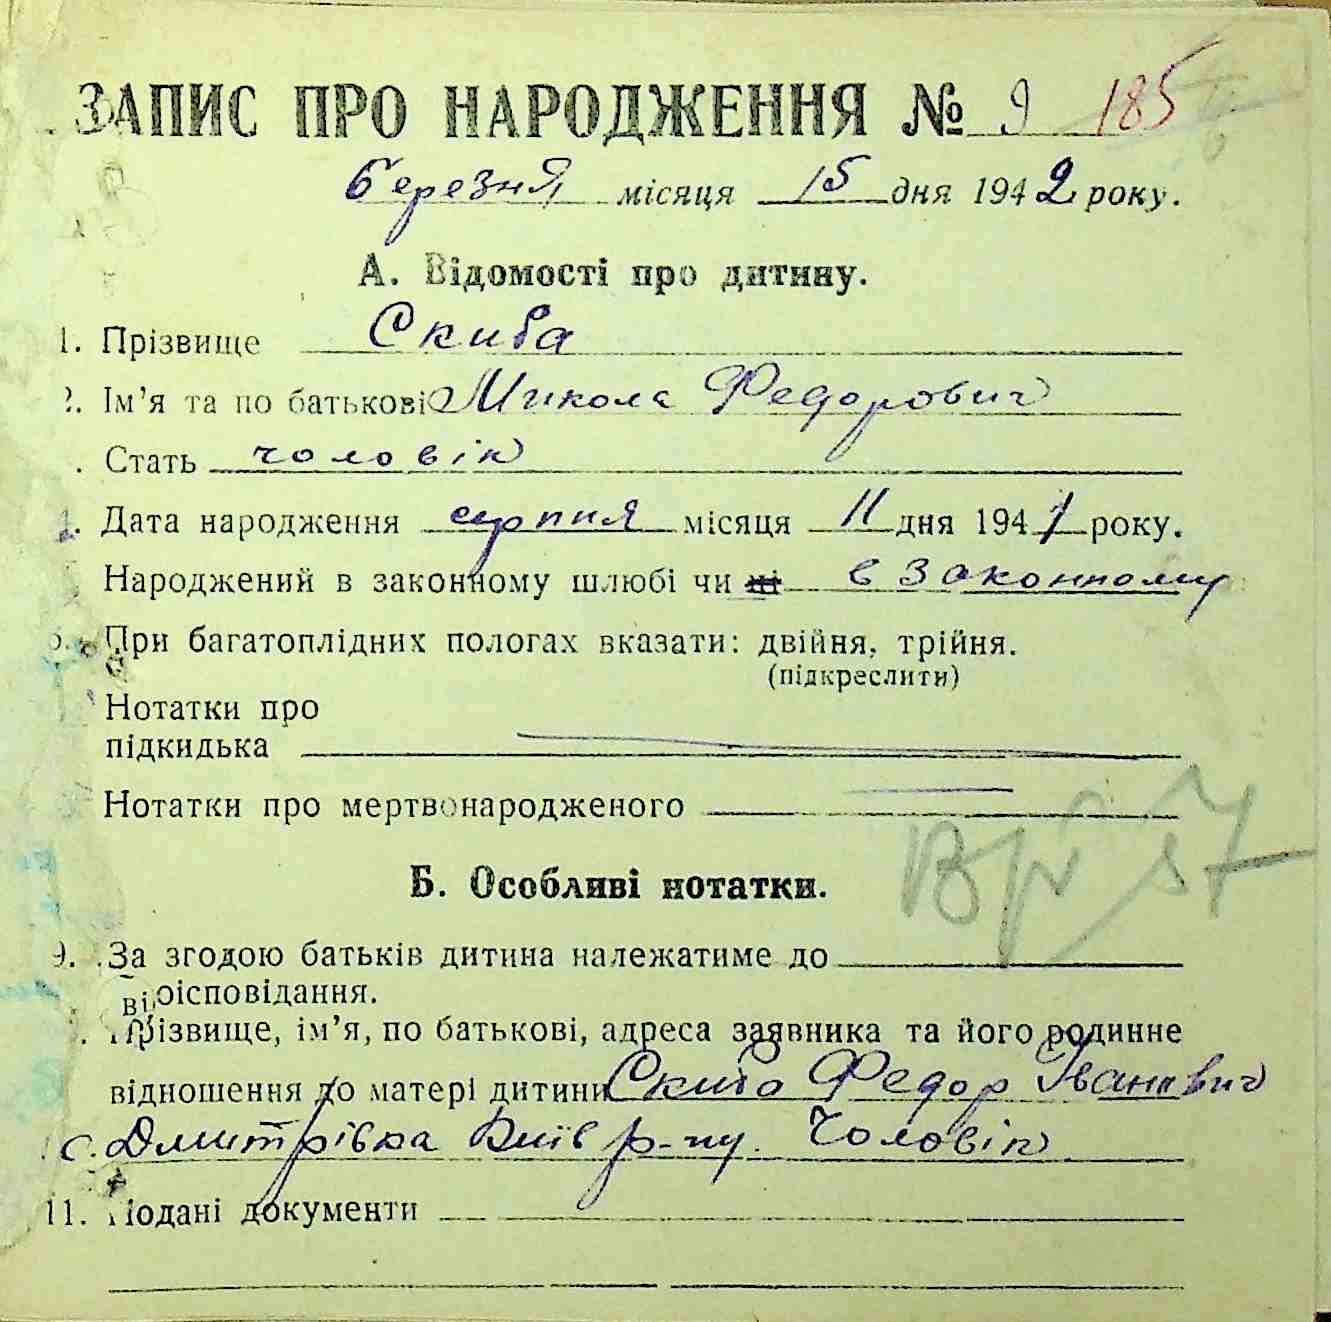 ЗАПИС ПРО НАРОДЖЕННЯ № 9 185
березня місяця 15 дня 1942 року.
А. Відомості про дитину.
1. Прізвище Скиба
2. Ім’я та по батькові Микола Федорович
. Стать чоловік
4. Дата народження серпня місяця 11 дня 1941 року.
Народжений в законному шлюбі чи ні в законному
При багатоплідних пологах вказати: двійня, трійня.
(підкреслити)
Нотатки про
підкидька
Нотатки про мертвонародженого
Б. Особливі нотатки.
9. За згодою батьків дитина належатиме до
віроісповідання.
. Прізвище, ім’я, по батькові, адреса заявника та його родинне
відношення до матері дитини Скиба Федор Іванович
с. Дмитрівка Київ р-ну. Чоловік
11. Подані документи